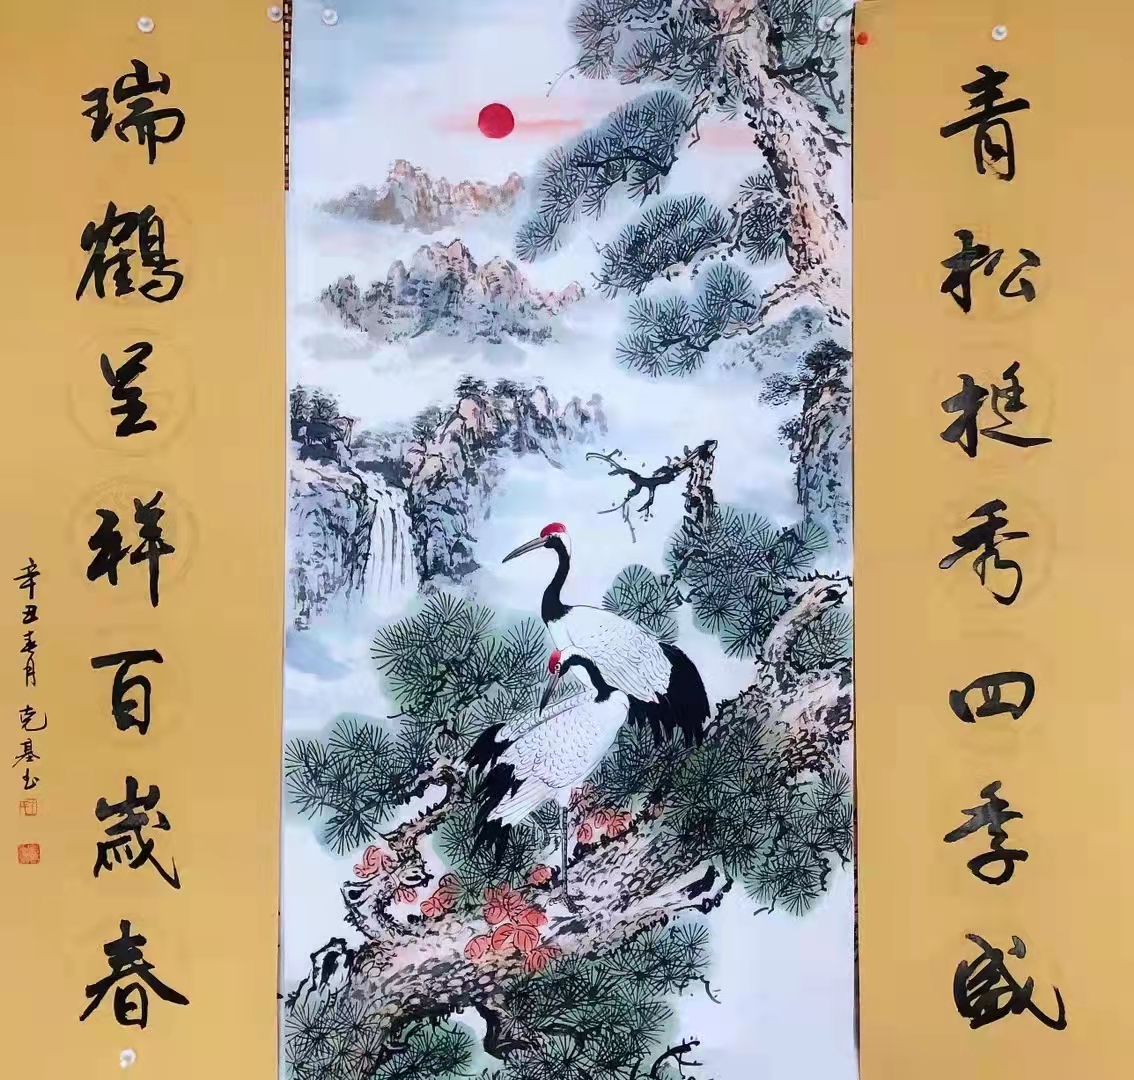 青松挺秀四季盛
瑞鹤呈祥百岁春
辛丑春月 克基书